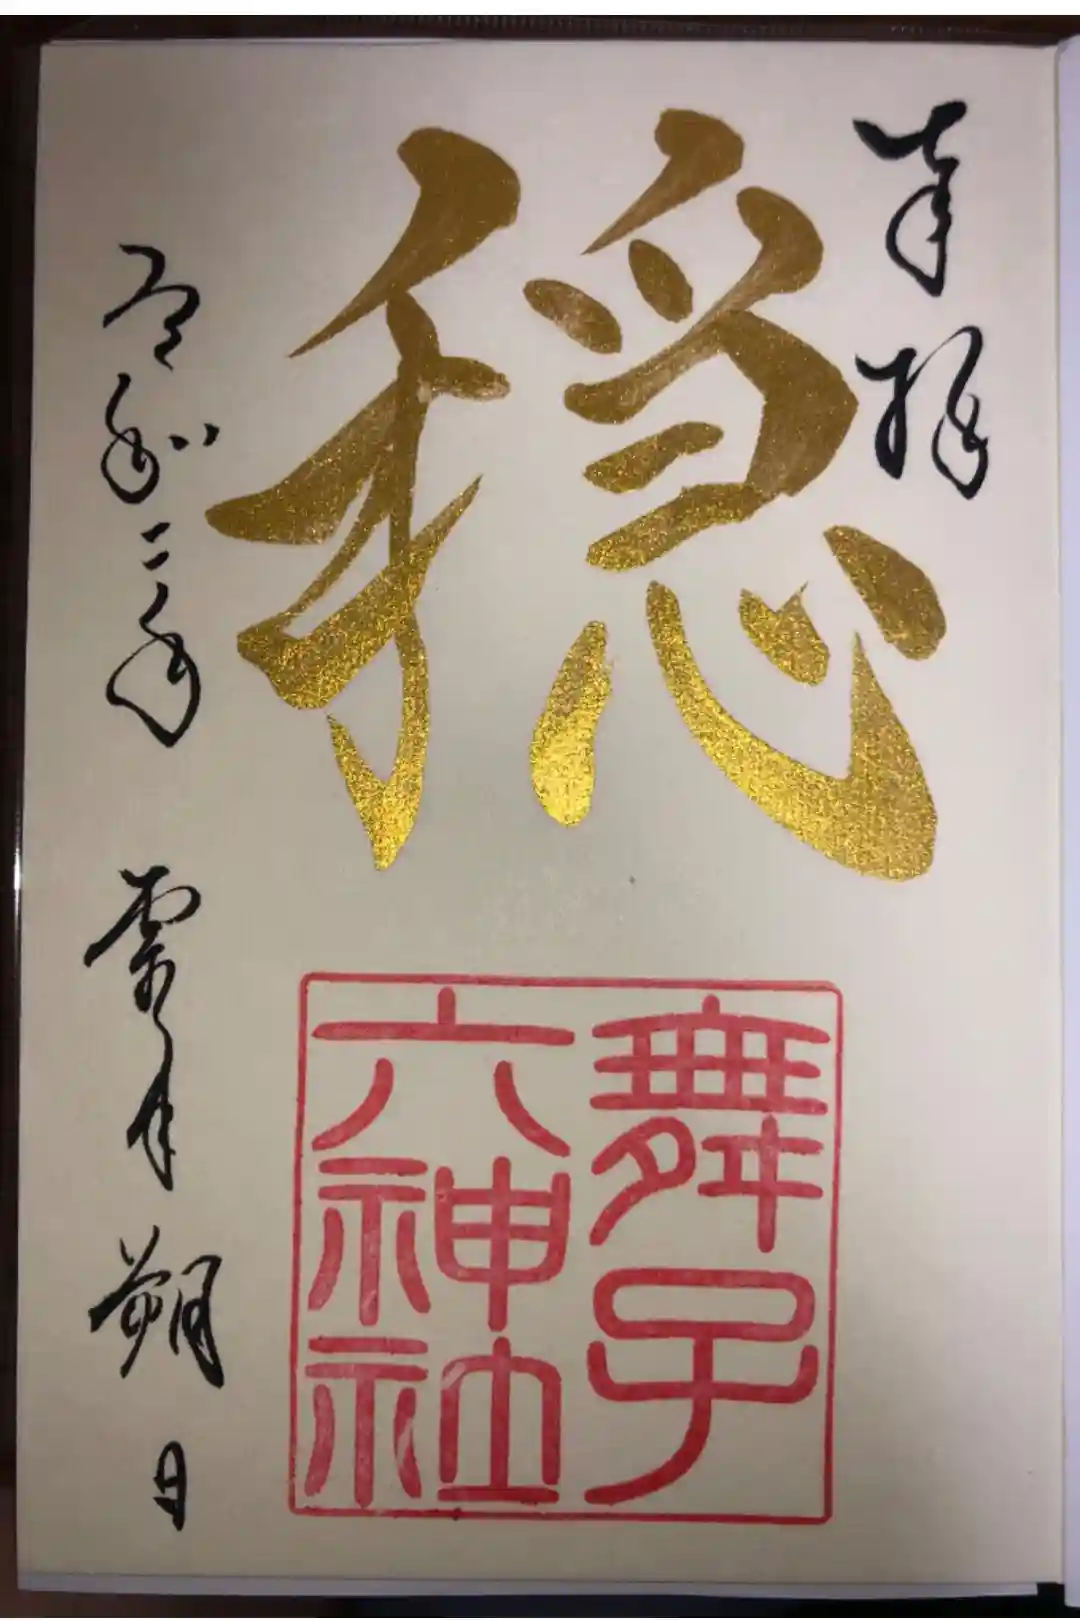 奉拝
穏
舞子
六神社
令和二年 霜月 朔日